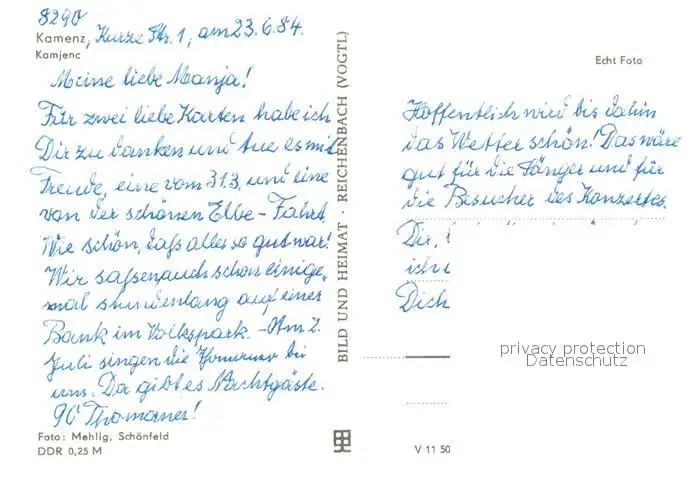 8290
Kamenz, Kurze Str. 1, am 23.6.84.
Kamjenc
Meine liebe Manja!
Für zwei liebe Karten habe ich
Dir zu danken und tue es mit
Freude, eine vom 31.3. und eine
von der schönen Elbe-Fahrt.
Wie schön, daß alles so gut war!
Wir saßen auch schon einige-
mal stundenlang auf einer
Bank im Volkspark. - Am 2.
Juli singen die Thomaner bei
uns. Da gibt es Nachtgäste.
90 Thomaner!
Foto: Mehlig, Schönfeld
DDR 0,25 M
BILD UND HEIMAT · REICHENBACH (VOGTL)
Echt Foto
Hoffentlich wird bis dahin
das Wetter schön! Das wäre
gut für die Sänger und für
die Besucher des Konzertes.
Dir,
ich
Dich
privacy protection
Datenschutz
V 11 50